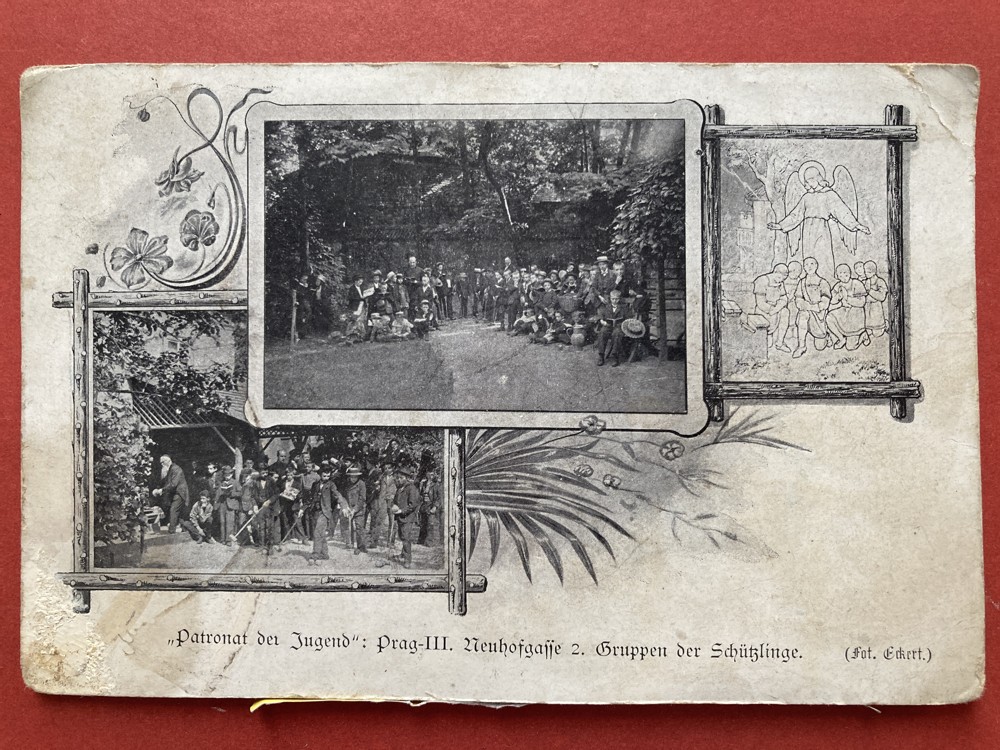 „Patronat der Jugend“: Prag-III. Neuhofgasse 2. Gruppen der Schützlinge. (Fot. Eckert.)